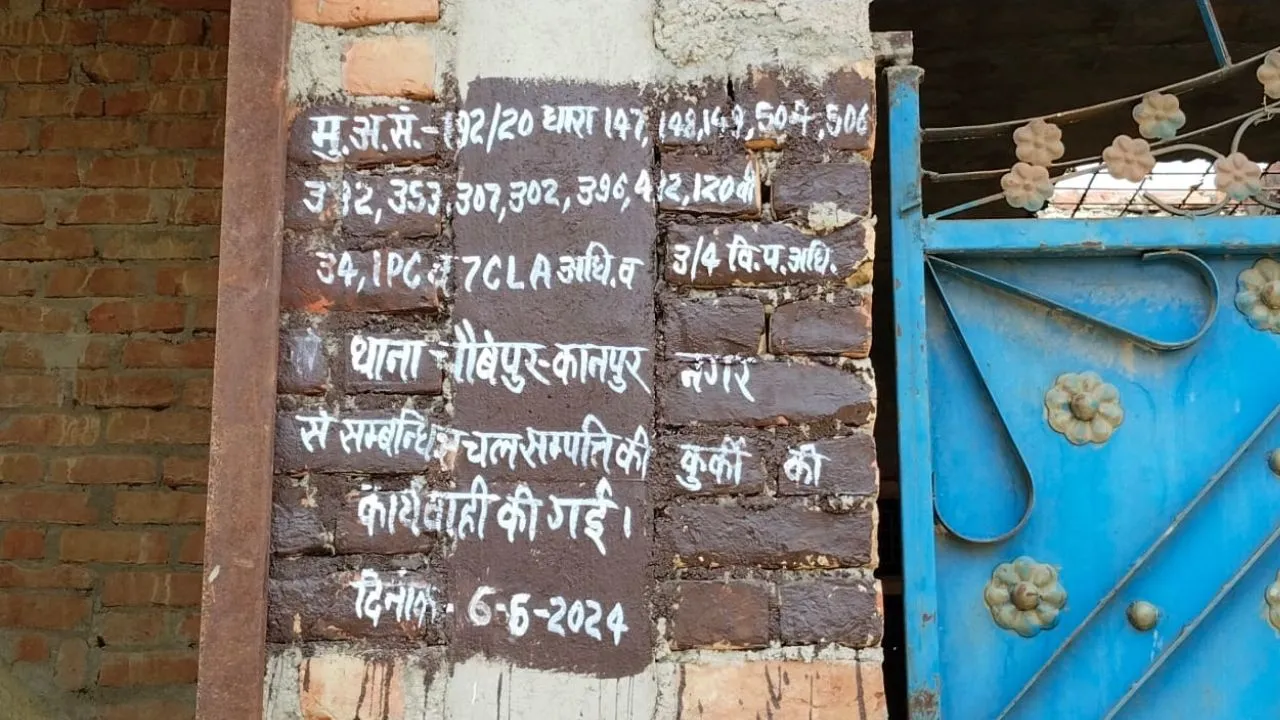 मु.अ.सं.-192/20 धारा 147, 148, 149, 504, 506
332, 353, 307, 302, 396, 412, 120बी
34, IPC व 7CLA अधि. व 3/4 वि.प. अधि.
थाना - चौबेपुर-कानपुर नगर
से सम्बन्धित चल सम्पत्ति की कुर्की की
कार्यवाही की गई।
दिनांक - 6-6-2024